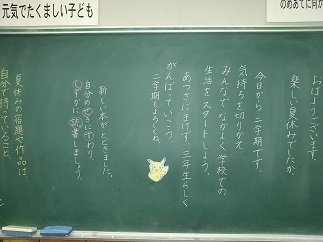 元気でたくましい子ども
のめあてに向か
おはようございます。
楽しい夏休みでしたか。
今日から二学期です。
気持ちを切りかえ、
みんなでなかよく学校での
生活をスタートしましょう。
あつさにまけず、三年生らしく
がんばっていこう。
二学期もよろしくね。
新しい本がとどきました。
自分のせきにすわり、
しずかに読書しましょう。
夏休みの宿題や作品は
自分で持っていること